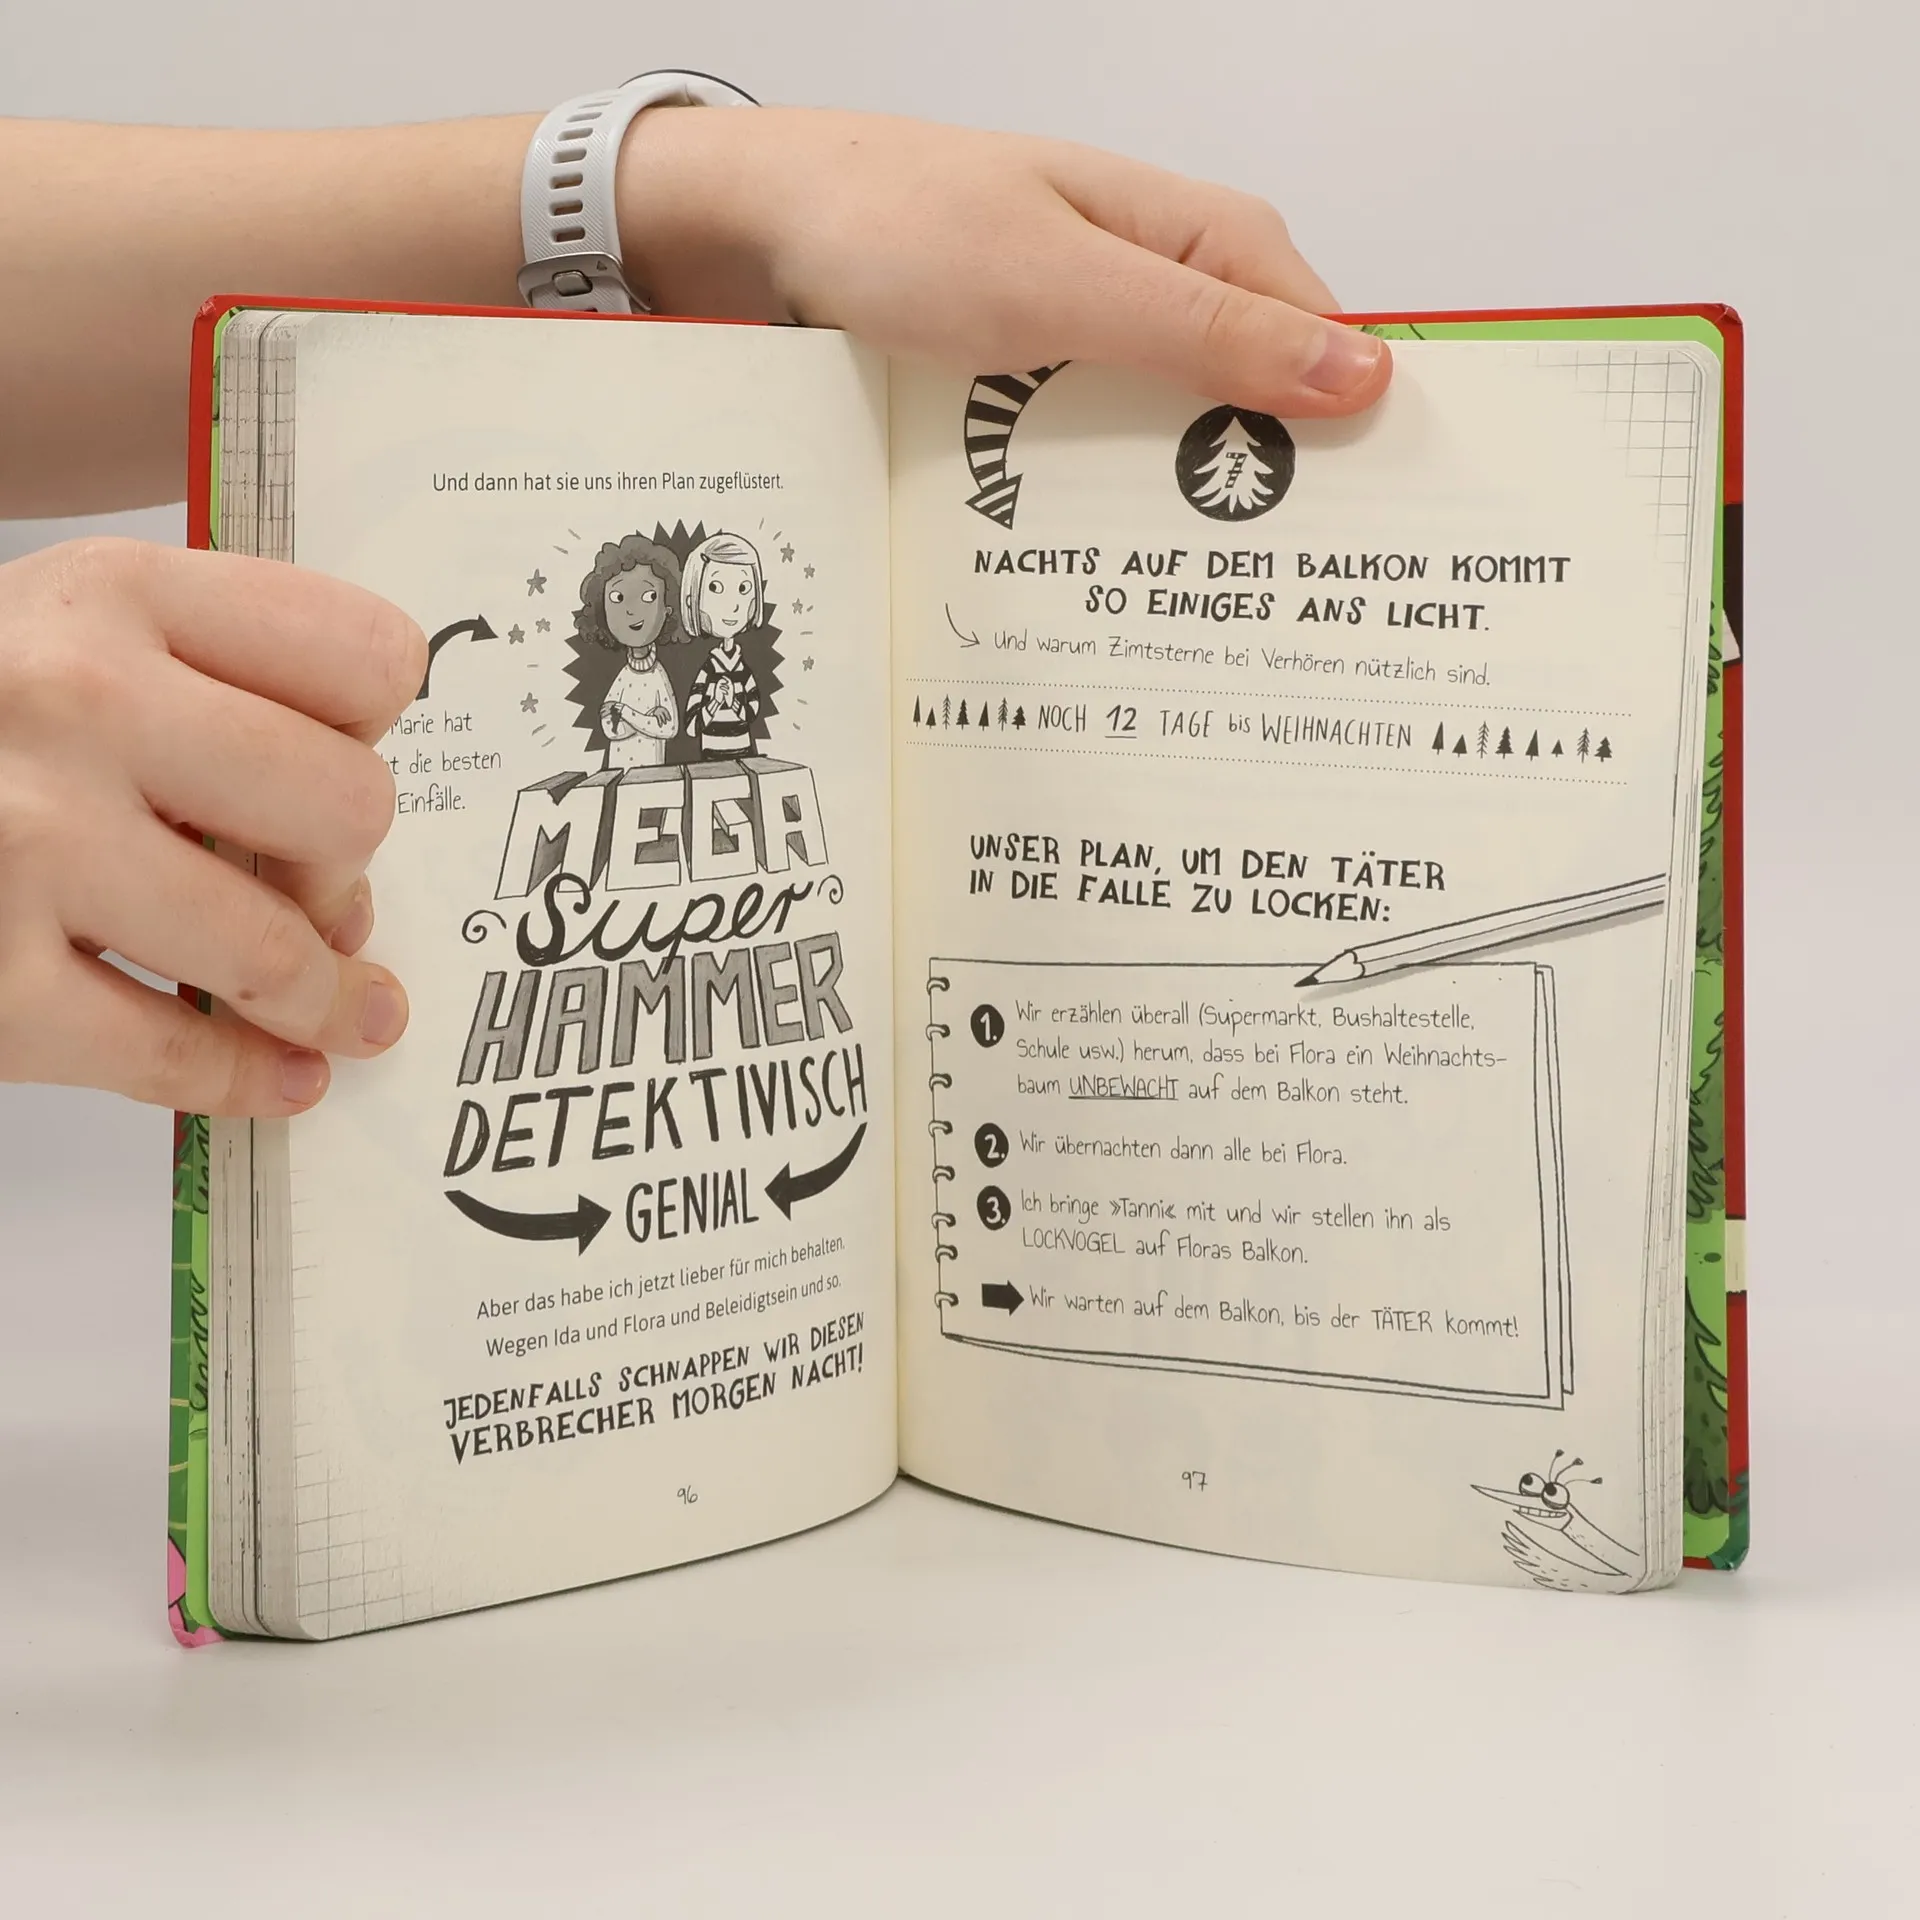 Und dann hat sie uns ihren Plan zugeflüstert.
Marie hat
die besten
Einfälle.
MEGA
Super
HAMMER
DETEKTIVISCH
GENIAL
Aber das habe ich jetzt lieber für mich behalten.
Wegen Ida und Flora und Beleidigtsein und so.
JEDENFALLS SCHNAPPEN WIR DIESEN
VERBRECHER MORGEN NACHT!
96
7
NACHTS AUF DEM BALKON KOMMT
SO EINIGES ANS LICHT.
Und warum Zimtsterne bei Verhören nützlich sind.
NOCH 12 TAGE bis WEIHNACHTEN
UNSER PLAN, UM DEN TÄTER
IN DIE FALLE ZU LOCKEN:
1. Wir erzählen überall (Supermarkt, Bushaltestelle,
Schule usw.) herum, dass bei Flora ein Weihnachts-
baum UNBEWACHT auf dem Balkon steht.
2. Wir übernachten dann alle bei Flora.
3. Ich bringe »Tanni« mit und wir stellen ihn als
LOCKVOGEL auf Floras Balkon.
Wir warten auf dem Balkon, bis der TÄTER kommt!
97